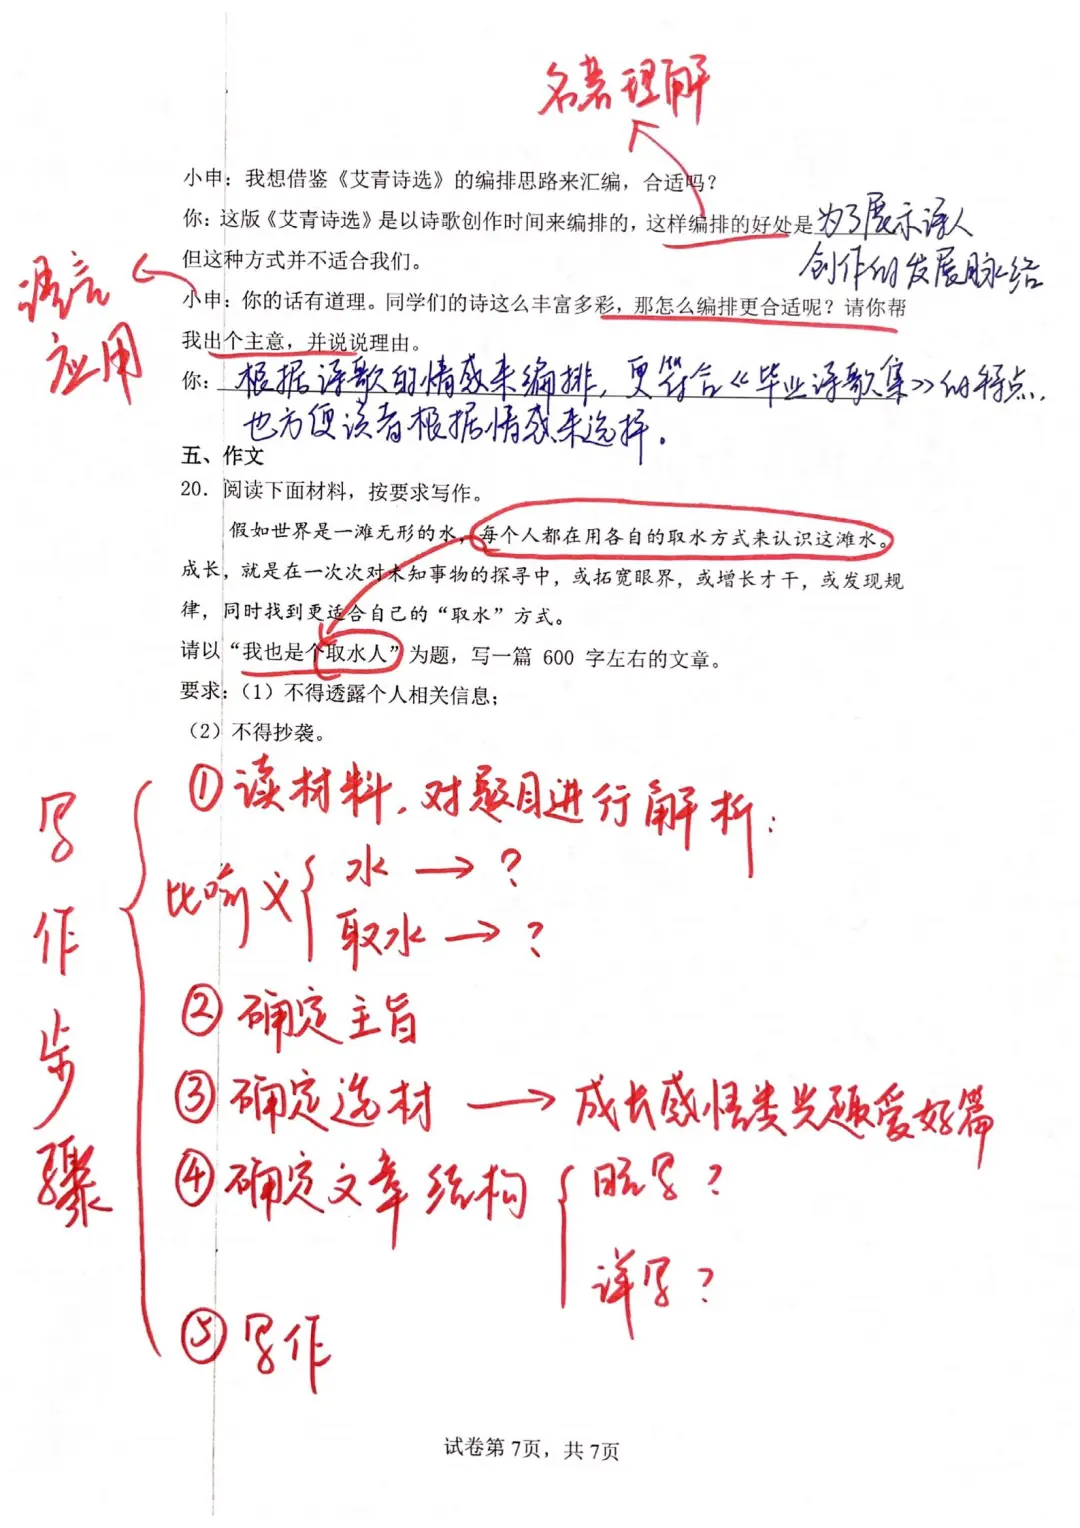 名著理解
小申：我想借鉴《艾青诗选》的编排思路来汇编，合适吗？
你：这版《艾青诗选》是以诗歌创作时间来编排的，这样编排的好处是为了展示诗人
创作的发展脉络
但这种方式并不适合我们。
语言
应用
小申：你的话有道理。同学们的诗这么丰富多彩，那怎么编排更合适呢？请你帮
我出个主意，并说说理由。
你：根据诗歌的情感来编排，更符合《毕业诗歌集》的特点，
也方便读者根据情感来选择。
五、作文
20．阅读下面材料，按要求写作。
假如世界是一滩无形的水，每个人都在用各自的取水方式来认识这滩水。
成长，就是在一次次对未知事物的探寻中，或拓宽眼界，或增长才干，或发现规
律，同时找到更适合自己的“取水”方式。
请以“我也是个取水人”为题，写一篇 600 字左右的文章。
要求：（1）不得透露个人相关信息；
（2）不得抄袭。
写作步骤
①读材料，对题目进行解析：
比喻义
水→？
取水→？
②确定主旨
③确定选材→成长感悟类兴趣爱好篇
④确定文章结构
略写？
详写？
⑤写作
试卷第 7页，共 7页